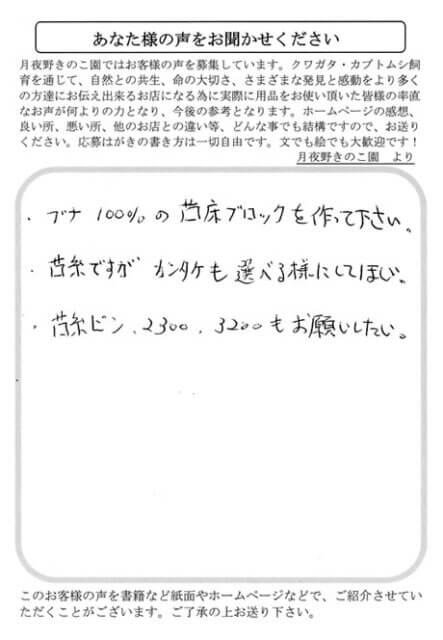 あなた様の声をお聞かせください
月夜野きのこ園ではお客様の声を募集しています。クワガタ・カブトムシ飼
育を通じて、自然との共生、命の大切さ、さまざまな発見と感動をより多く
の方達にお伝え出来るお店になる為に実際に用品をお使い頂いた皆様の率直
なお声が何よりの力となり、今後の参考となります。ホームページの感想、
良い所、悪い所、他のお店との違い等、どんな事でも結構ですので、お送り
ください。応募はがきの書き方は一切自由です。文でも絵でも大歓迎です！
月夜野きのこ園　より
・ブナ100%の菌床ブロックを作って下さい。
・菌糸ですが カンタケも選べる様にしてほしい。
・菌糸ビン、2300、3200もお願いしたい。
このお客様の声を書籍など紙面やホームページなどで、ご紹介させてい
ただくことがございます。ご了承の上お送り下さい。